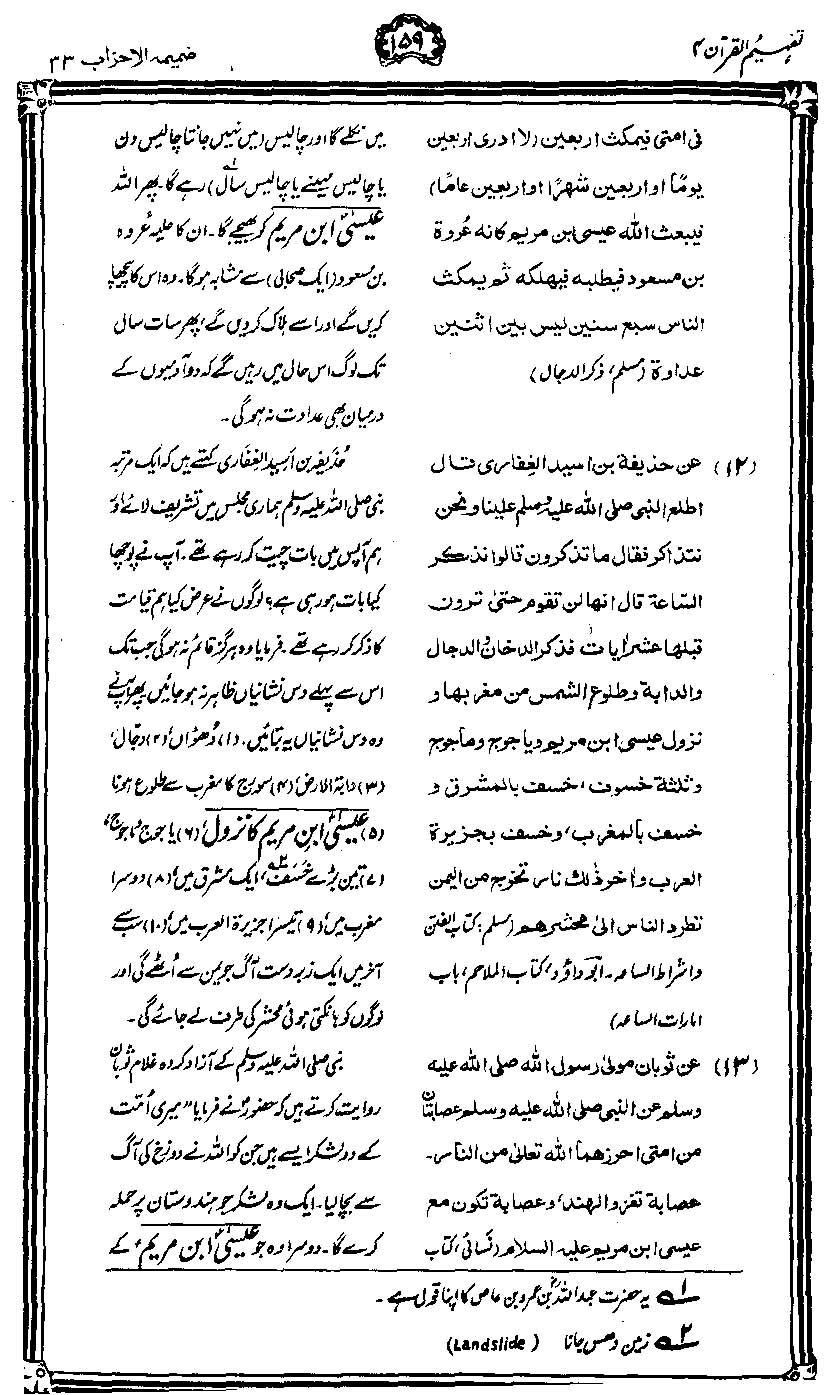 تفہیم القرآن ۴
۱۵۹
ضمیمہ الاحزاب ۳۳
فی امتی فیمکث اربعین (لا ادری اربعین
یومًا او اربعین شھرًا او اربعین عامًا)
فیبعث اللہ عیسی ابن مریم کانہ عُروة
بن مسعود فیطلبہ فیھلکہ ثم یمکث
الناس سبع سنین لیس بین اثنین
عداوة (مسلم، ذکر الدجال)
میں نکلے گا اور چالیس (میں نہیں جانتا چالیس دن
یا چالیس مہینے یا چالیس سال۱) رہے گا۔ پھر اللہ
عیسیٰ ابن مریم کو بھیجے گا۔ ان کا حلیہ عُروہ
بن مسعود (ایک صحابی) سے مشابہ ہوگا۔ وہ اس کا پیچھا
کریں گے اور اسے ہلاک کر دیں گے، پھر سات سال
تک لوگ اس حال میں رہیں گے کہ دو آدمیوں کے
درمیان بھی عداوت نہ ہوگی۔
(۱۲) عن حذیفة بن اسید الغفاری قال
اطلع النبی صلی اللہ علیہ وسلم علینا ونحن
نتذاکر فقال ما تذکرون قالوا نذکر
الساعة قال انھا لن تقوم حتیٰ ترون
قبلھا عشر اٰیات فذکر الدخان والدجال
والدابة وطلوع الشمس من مغربھا و
نزول عیسی ابن مریم ویاجوج وماجوج
وثلثة خسوف، خسف بالمشرق و
خسف بالمغرب، وخسف بجزیرة
العرب واٰخر ذٰلک ناس تخرج من الیمن
تطرد الناس الیٰ محشرھم (مسلم: کتاب الفتن
واشراط الساعہ۔ ابوداؤد، کتاب الملاحم، باب
امارات الساعہ)
حُذیفہ بن اَسید الغِفاری کہتے ہیں کہ ایک مرتبہ
نبی صلی اللہ علیہ وسلم ہماری مجلس میں تشریف لائے اور
ہم آپس میں بات چیت کر رہے تھے۔ آپ نے پوچھا
کیا بات ہو رہی ہے؟ لوگوں نے عرض کیا ہم قیامت
کا ذکر کر رہے تھے۔ فرمایا وہ ہرگز قائم نہ ہوگی جب تک
اس سے پہلے دس نشانیاں ظاہر نہ ہو جائیں پھر آپ نے
وہ دس نشانیاں یہ بتائیں۔ (۱) دُھواں، (۲) دجّال،
(۳) دابة الارض، (۴) سورج کا مغرب سے طلوع ہونا
(۵) عیسیٰ ابن مریم کا نزول، (۶) یاجوج وماجوج،
(۷) تین بڑے خسف۲، ایک مشرق میں، (۸) دوسرا
مغرب میں، (۹) تیسرا جزیرة العرب میں، (۱۰) سب سے
آخر میں ایک زبردست آگ جو یمن سے اُٹھے گی اور
لوگوں کو ہانکتی ہوئی محشر کی طرف لے جائے گی۔
(۱۳) عن ثوبان مولیٰ رسول اللہ صلی اللہ علیہ
وسلم عن النبی صلی اللہ علیہ وسلم عصابتان
من امتی احرزھما اللہ تعالیٰ من الناس۔
عصابة تغزو الھند، وعصابة تکون مع
عیسی ابن مریم علیہ السلام (نسائی، کتاب
نبی صلی اللہ علیہ وسلم کے آزاد کردہ غلام ثوبان
روایت کرتے ہیں کہ حضورؐ نے فرمایا "میری اُمت
کے دو لشکر ایسے ہیں جن کو اللہ نے دوزخ کی آگ
سے بچا لیا۔ ایک وہ لشکر جو ہندوستان پر حملہ
کرے گا۔ دوسرا وہ جو عیسیٰ ابن مریم، کے
۱ یہ حضرت عبداللہؓ بن عمرو بن عاص کا اپنا قول ہے۔
۲ زمین دھس جانا (Landslide)